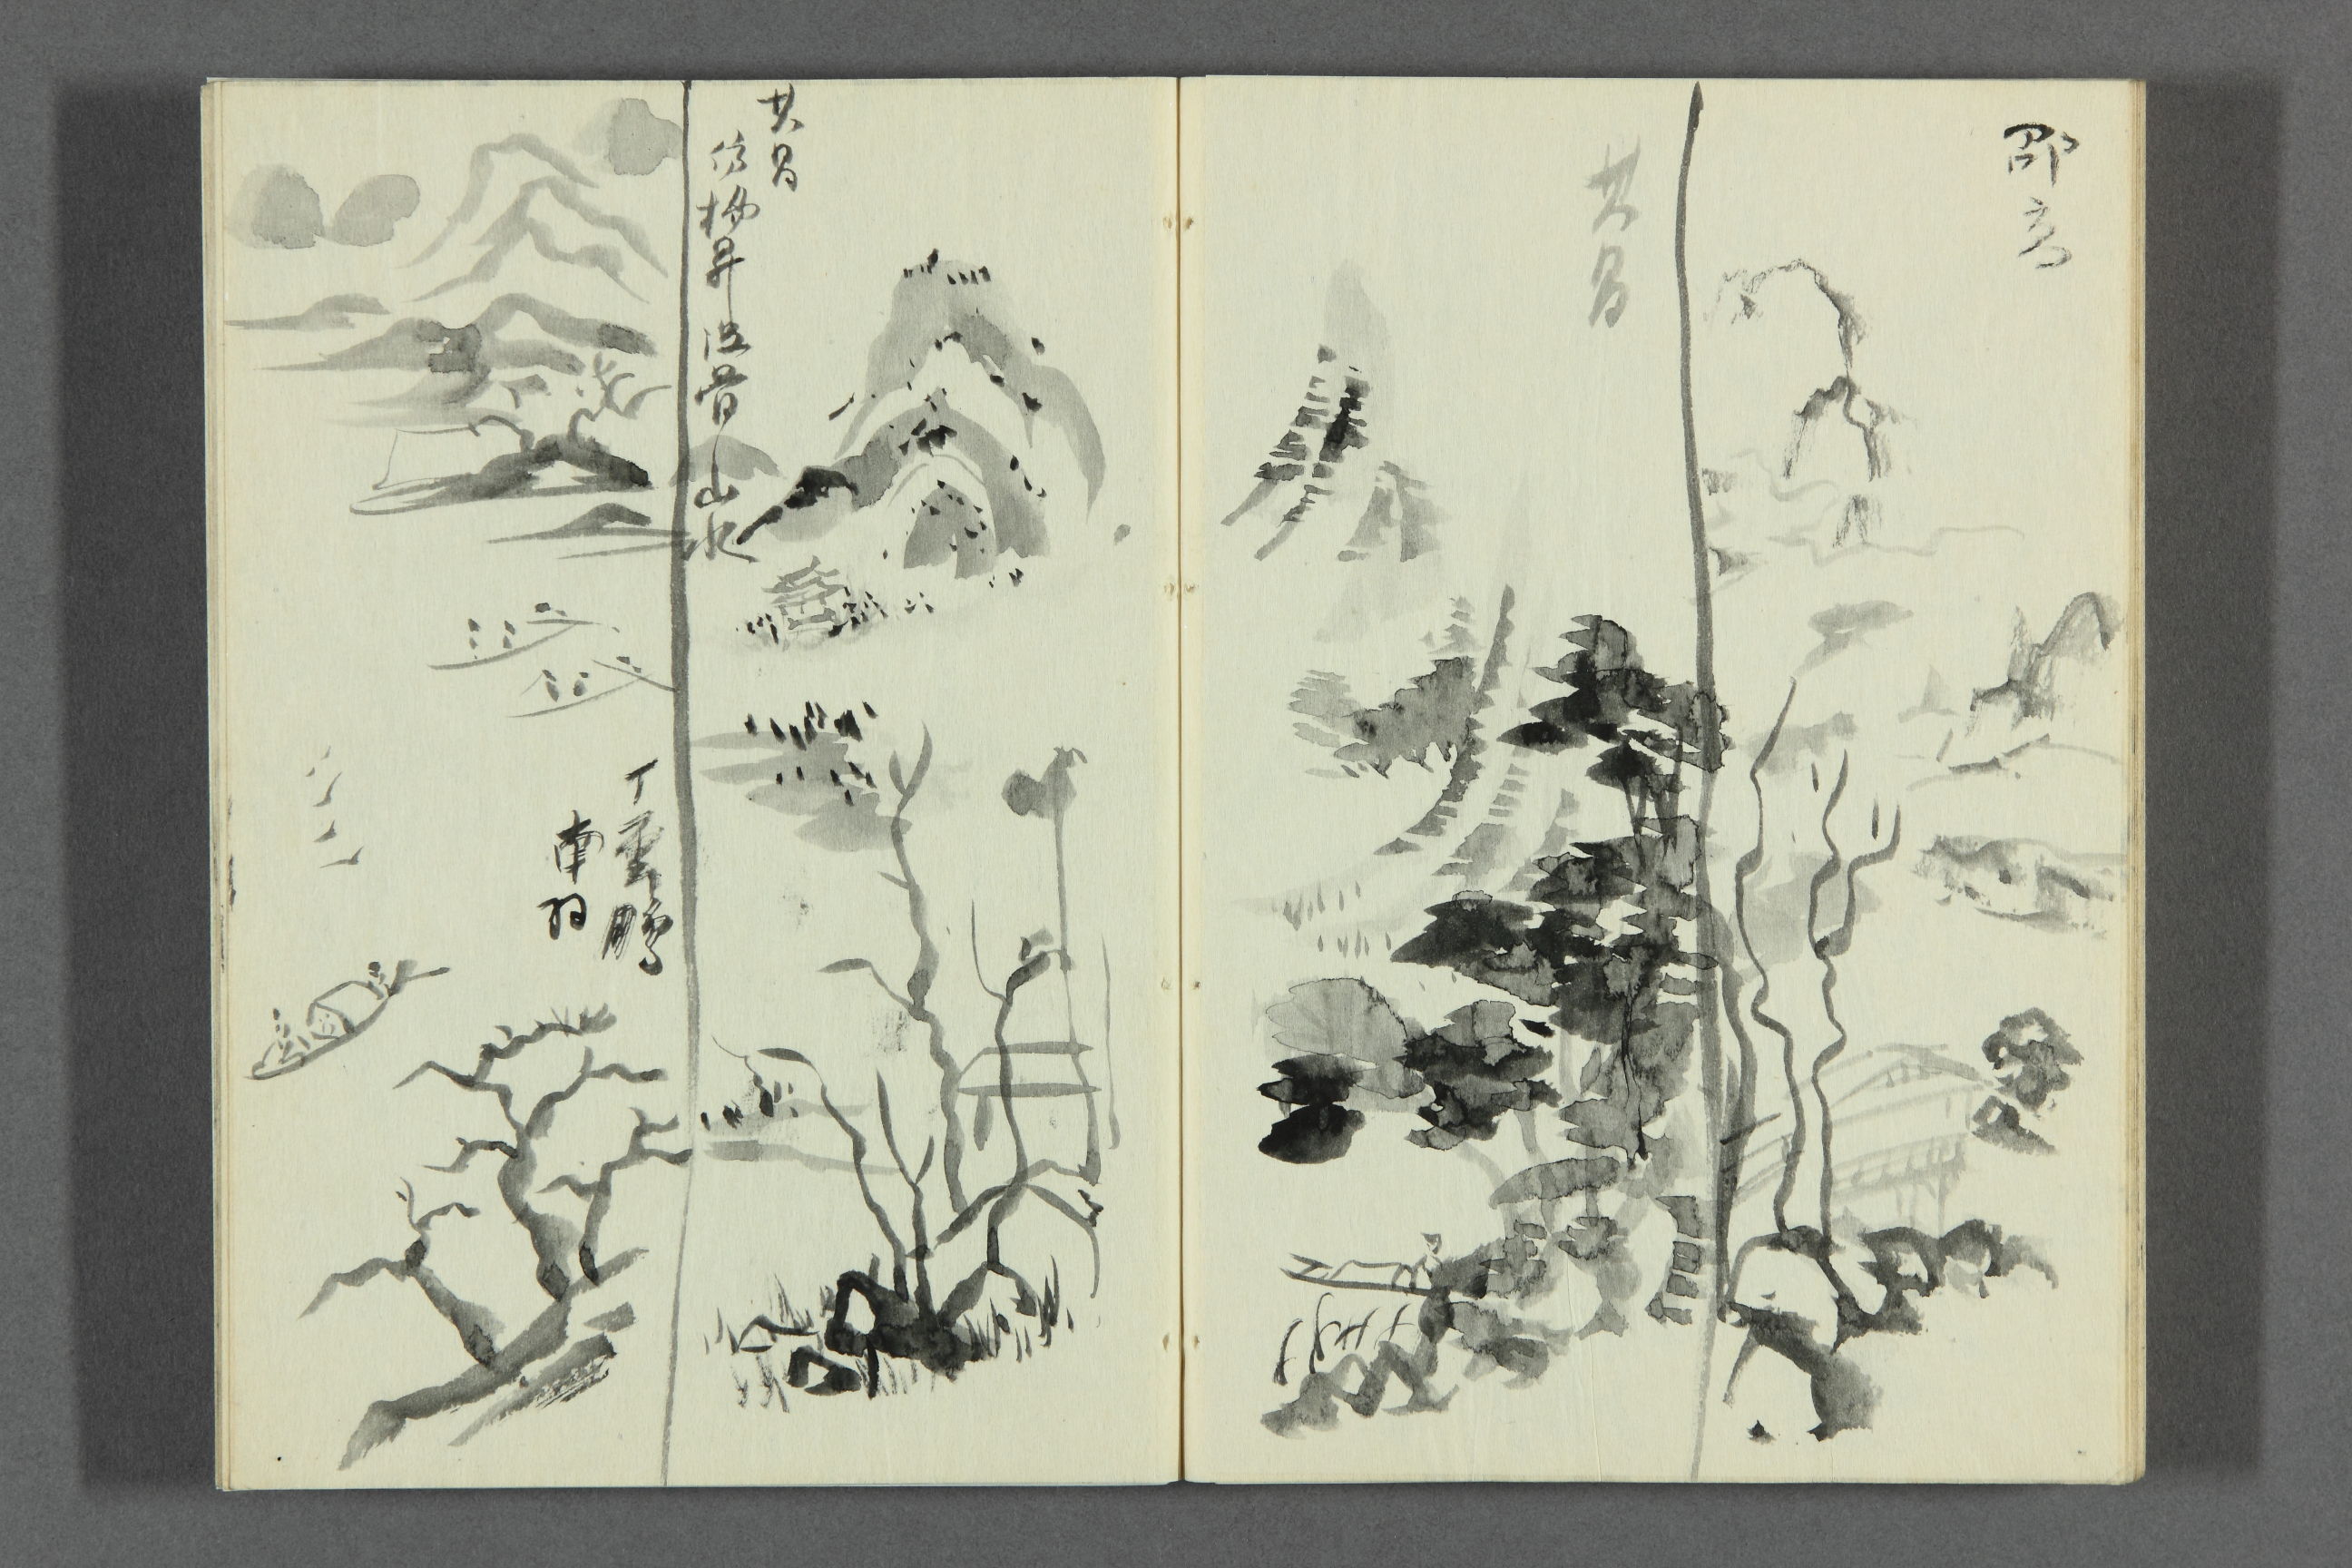 邵高
其昌
其昌
仿楊昇没骨山水
丁雲鵬
南羽